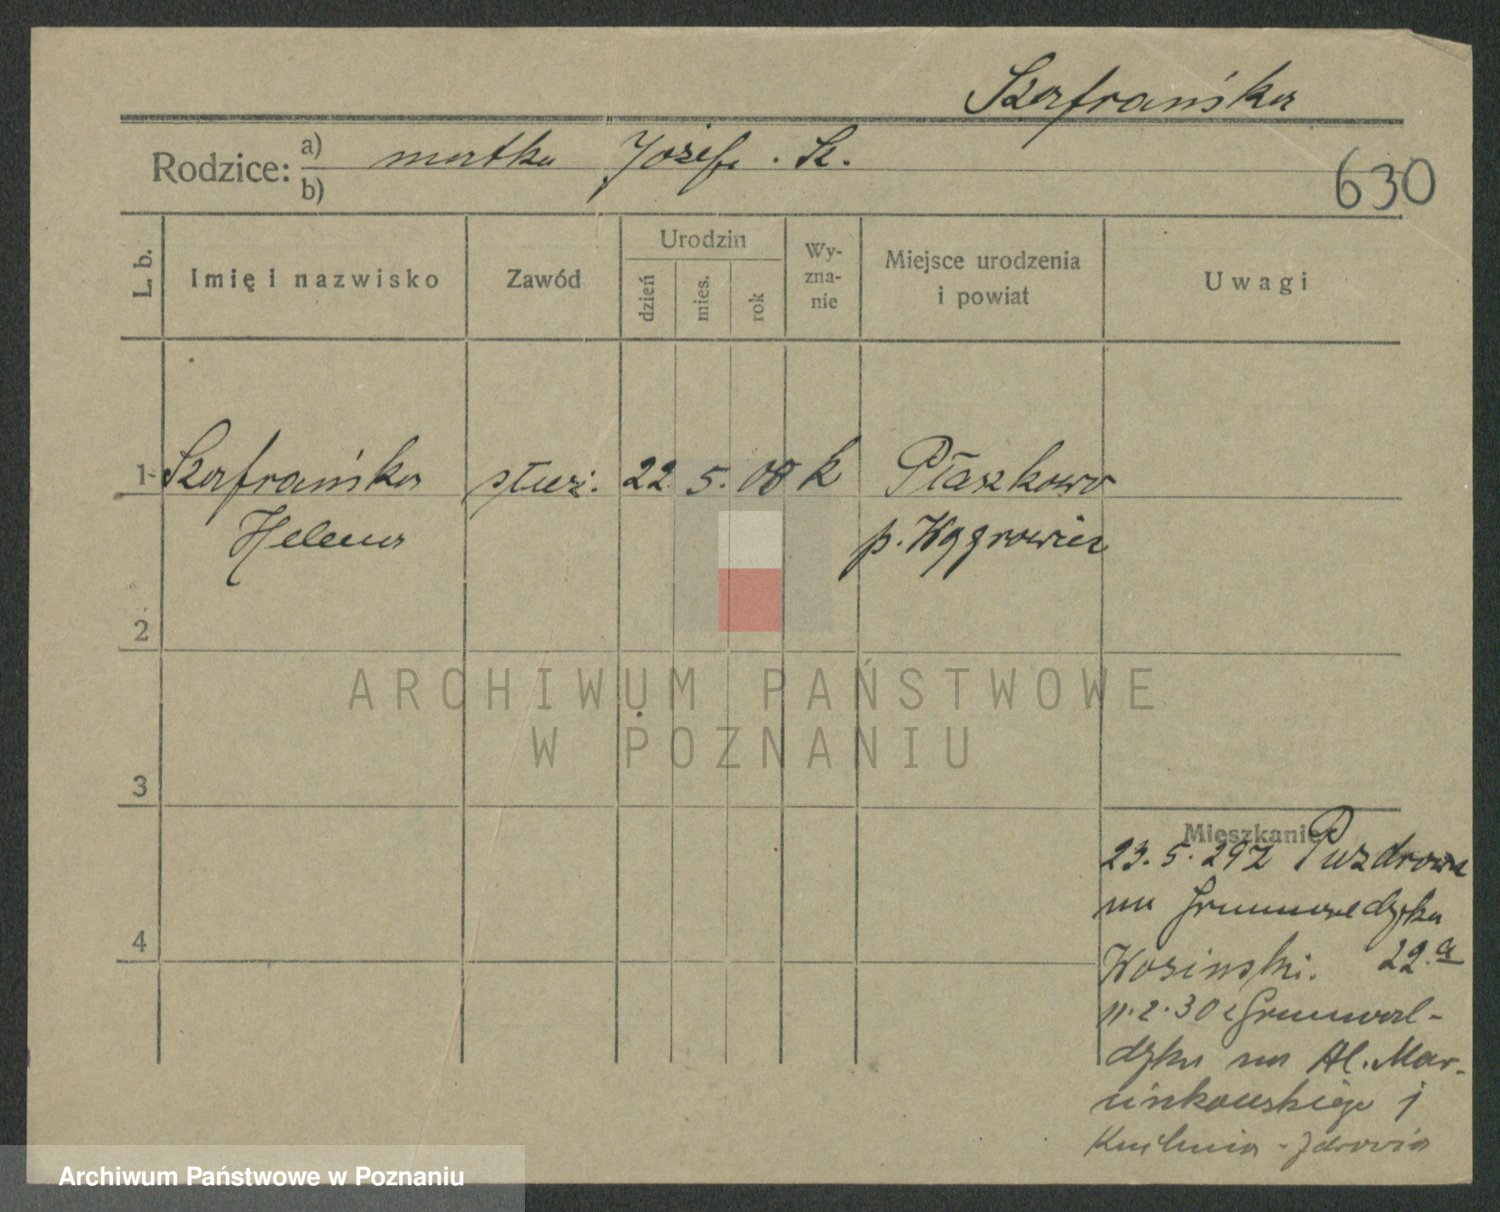 Szafrańska
Rodzice: a) matka Józefa. Sz.
b)
630
L. b.
Imię i nazwisko
Zawód
Urodzin
dzień
mies.
rok
Wy-
zna-
nie
Miejsce urodzenia
i powiat
Uwagi
1 Szafrańska służ. 22. 5. 08 k Płaszkowo
Helena p. Wągrowiec
2
3
4
ARCHIWUM PAŃSTWOWE
W POZNANIU
Mieszkanie
23. 5. 29 z
na Grunwaldzka
Wosinski. 22.a
11.2.30 z Grunwal-
dzka na Al. Mar-
cinkowskiego 1
Kuchnia - Zdrowia
Archiwum Państwowe w Poznaniu